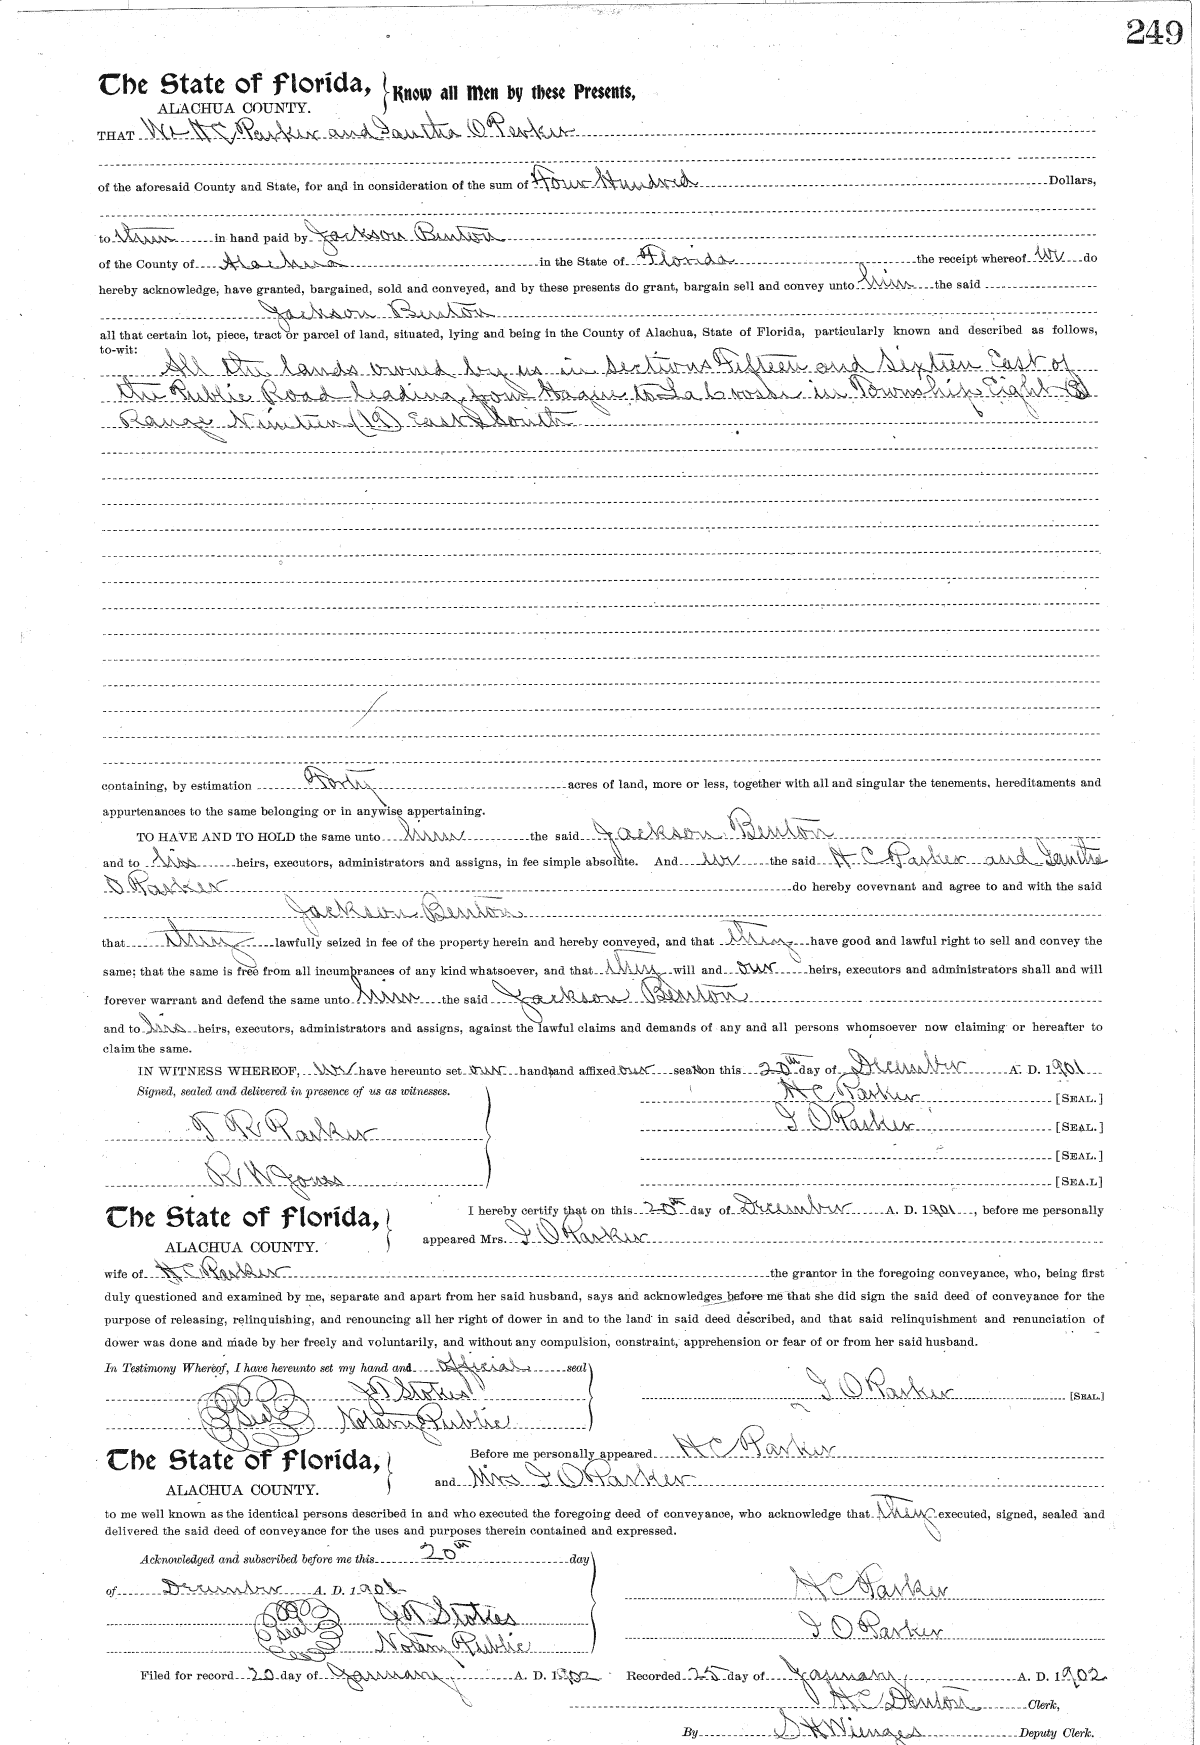 249
The State of Florida, Know all Men by these Presents,
ALACHUA COUNTY.
THAT We H C Parker and Iantha O Parker
of the aforesaid County and State, for and in consideration of the sum of Four Hundred Dollars,
to them in hand paid by Jackson Benton
of the County of Alachua in the State of Florida the receipt whereof we do
hereby acknowledge, have granted, bargained, sold and conveyed, and by these presents do grant, bargain sell and convey unto him the said
Jackson Benton
all that certain lot, piece, tract or parcel of land, situated, lying and being in the County of Alachua, State of Florida, particularly known and described as follows,
to-wit:
All the lands owned by us in sections Fifteen and Sixteen East of
the Public Road leading from Hague to La Crosse in Township Eight (8)
Range Ninteen (19) East & South
containing, by estimation Forty acres of land, more or less, together with all and singular the tenements, hereditaments and
appurtenances to the same belonging or in anywise appertaining.
TO HAVE AND TO HOLD the same unto him the said Jackson Benton
and to his heirs, executors, administrators and assigns, in fee simple absolute. And we the said H C Parker and Iantha
O Parker do hereby covevnant and agree to and with the said
Jackson Benton
that they lawfully seized in fee of the property herein and hereby conveyed, and that they have good and lawful right to sell and convey the
same; that the same is free from all incumbrances of any kind whatsoever, and that they will and our heirs, executors and administrators shall and will
forever warrant and defend the same unto him the said Jackson Benton
and to his heirs, executors, administrators and assigns, against the lawful claims and demands of any and all persons whomsoever now claiming or hereafter to
claim the same.
IN WITNESS WHEREOF, we have hereunto set our hands and affixed our seals on this 20th day of December A. D. 1901
Signed, sealed and delivered in presence of us as witnesses.
H C Parker [SEAL.]
T R Parker
I O Parker [SEAL.]
[SEAL.]
R W Jones
[SEA.L]
The State of Florida,
ALACHUA COUNTY.
I hereby certify that on this 20th day of December A. D. 1901, before me personally
appeared Mrs. I O Parker
wife of H C Parker the grantor in the foregoing conveyance, who, being first
duly questioned and examined by me, separate and apart from her said husband, says and acknowledges before me that she did sign the said deed of conveyance for the
purpose of releasing, relinquishing, and renouncing all her right of dower in and to the land in said deed described, and that said relinquishment and renunciation of
dower was done and made by her freely and voluntarily, and without any compulsion, constraint, apprehension or fear of or from her said husband.
In Testimony Whereof, I have hereunto set my hand and official seal
Stokes
I O Parker [SEAL.]
Seal Notary Public
The State of Florida,
ALACHUA COUNTY.
Before me personally appeared H C Parker
and Mrs I O Parker
to me well known as the identical persons described in and who executed the foregoing deed of conveyance, who acknowledge that they executed, signed, sealed and
delivered the said deed of conveyance for the uses and purposes therein contained and expressed.
Acknowledged and subscribed before me this 20th day
of December A. D. 1901
H C Parker
Seal Stokes
I O Parker
Notary Public
Filed for record 20 day of January A. D. 1902 Recorded 25 day of January A. D. 1902
H C Denton Clerk,
By S H Wienges Deputy Clerk.